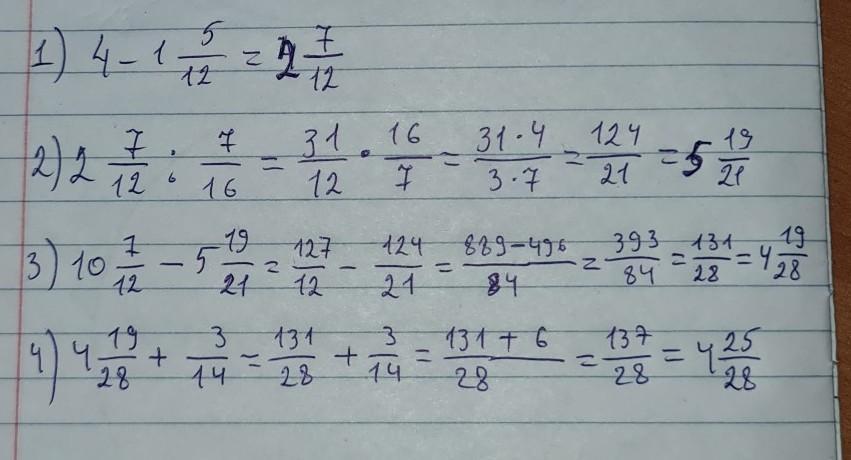 1) 4 - 1 5/12 = 2 7/12
2) 2 7/12 : 7/16 = 31/12 · 16/7 = 31·4/3·7 = 124/21 = 5 19/21
3) 10 7/12 - 5 19/21 = 127/12 - 124/21 = 889-496/84 = 393/84 = 131/28 = 4 19/28
4) 4 19/28 + 3/14 = 131/28 + 3/14 = 131+6/28 = 137/28 = 4 25/28